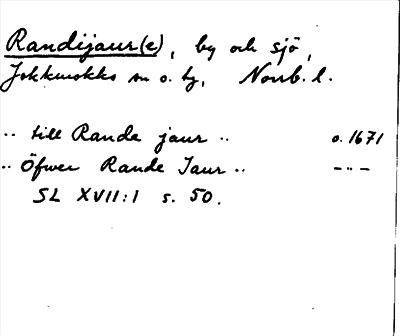 Randijaur(e), by och sjö,
Jokkmokks sn o. tg, Norrb. l.
.. till Rande jaur .. o. 1671
.. Öfwer Rande Jaur .. - " -
SL XVII:1 s. 50.